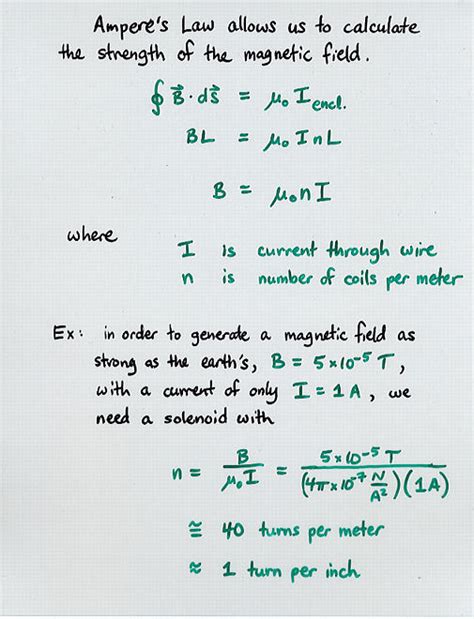 Ampere's Law allows us to calculate
the strength of the magnetic field.
∮ B⃗·ds⃗ = μ₀ I encl.
BL = μ₀ I n L
B = μ₀ n I
where
I is current through wire
n is number of coils per meter
Ex: in order to generate a magnetic field as
strong as the earth's, B = 5×10⁻⁵ T,
with a current of only I = 1 A, we
need a solenoid with
n = B / μ₀ I = 5×10⁻⁵ T / (4π×10⁻⁷ N/A²)(1A)
≅ 40 turns per meter
≈ 1 turn per inch